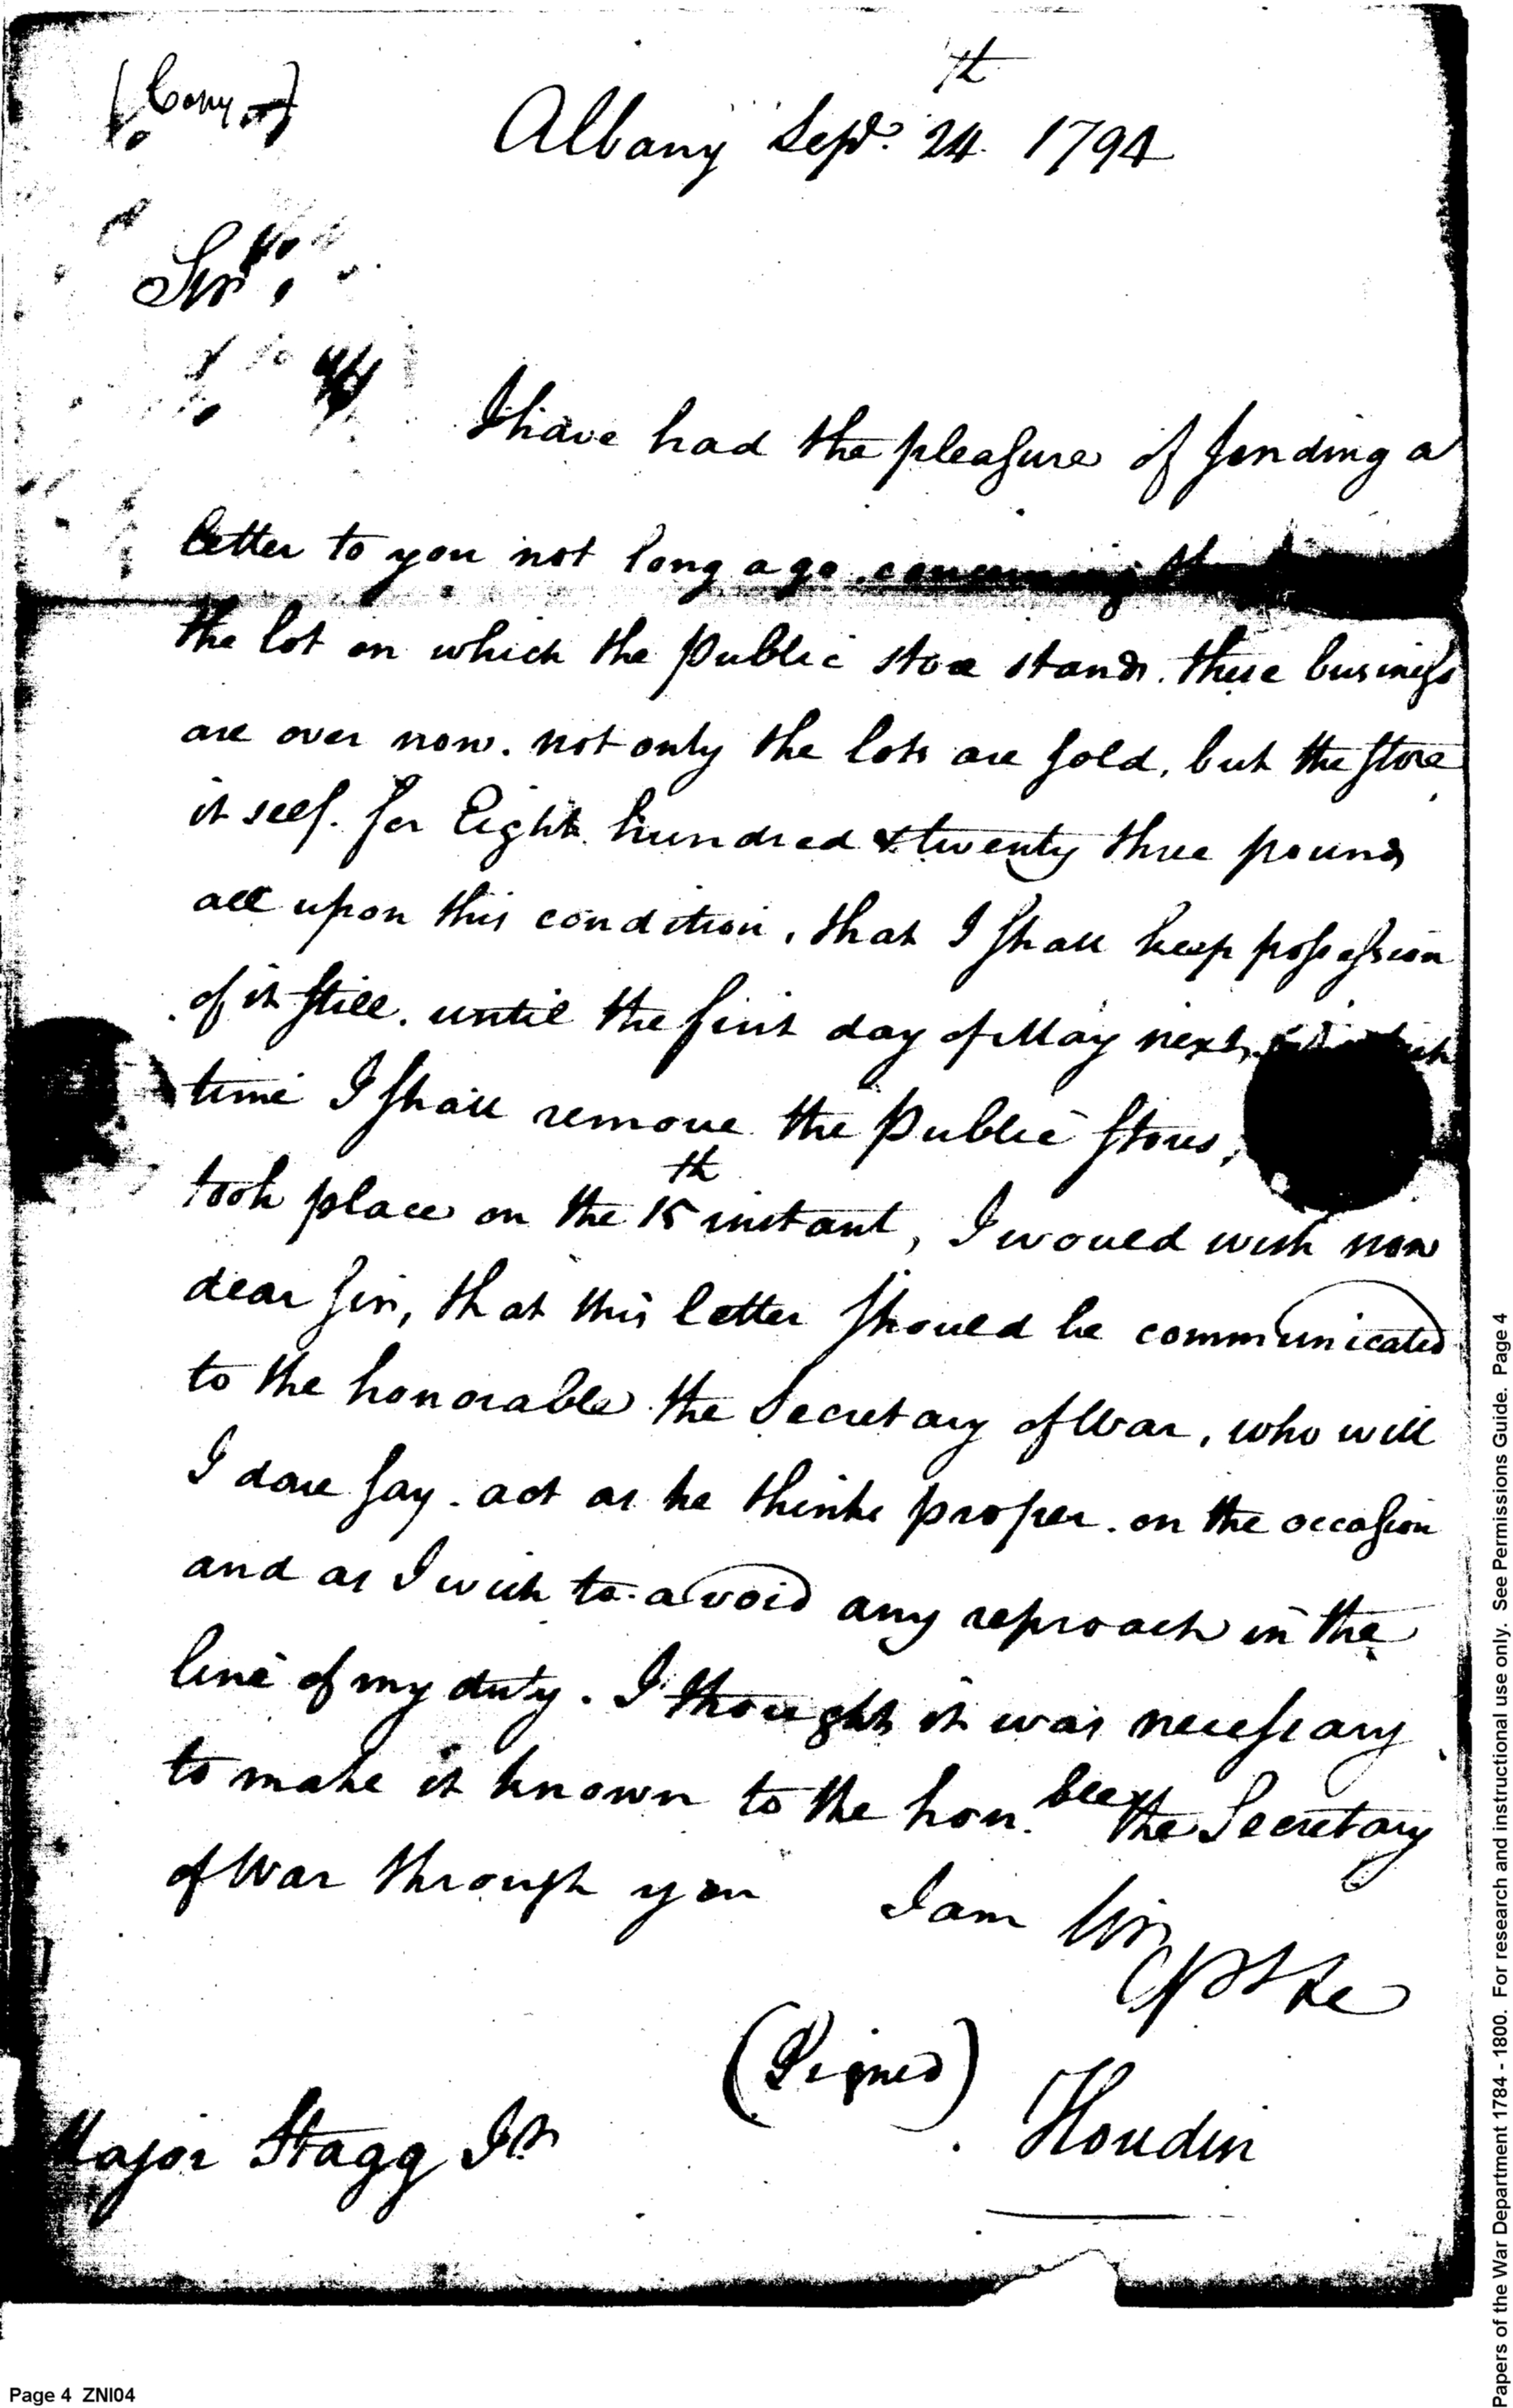 (Copy)
Albany Sept. 24th 1794
Sir,
I have had the pleasure of sending a
letter to you not long ago. concerning the
the lot on which the public store stands. these business
are over now. not only the lots are sold, but the store
it self. for Eight hundred & twenty three pounds
all upon this condition, that I shall keep possession
of it still. until the first day of May next,
time I shall remove the public stores,
took place on the 15th instant, I would wish now
dear sir, that this letter should be communicated
to the honorable the Secretary of War, who will
I dare say. act as he thinks proper. on the occasion
and as I wish to avoid any reproach in the
line of my duty. I thought it was necessary
to make it known to the hon.ble the Secretary
of War through you I am Sir
(Signed)
Houdin
Major Stagg Jr
Page 4 ZNI04
Papers of the War Department 1784 - 1800. For research and instructional use only. See Permissions Guide. Page 4